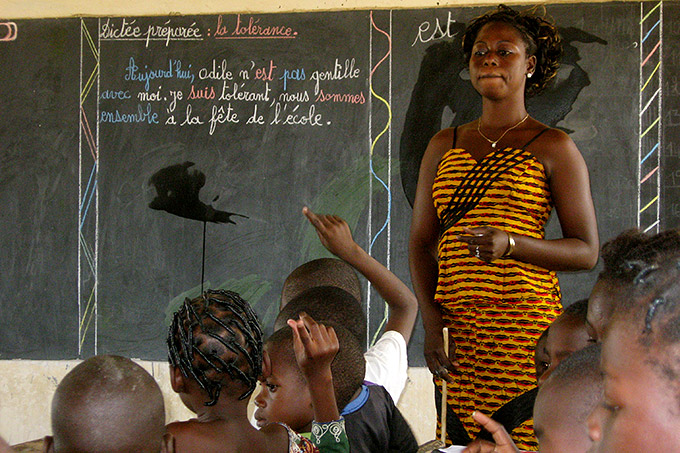 Dictée préparée : la tolérance.
est
Aujourd'hui, odile n'est pas gentille
avec moi. je suis tolérant, nous sommes
ensemble a la fête de l'école.